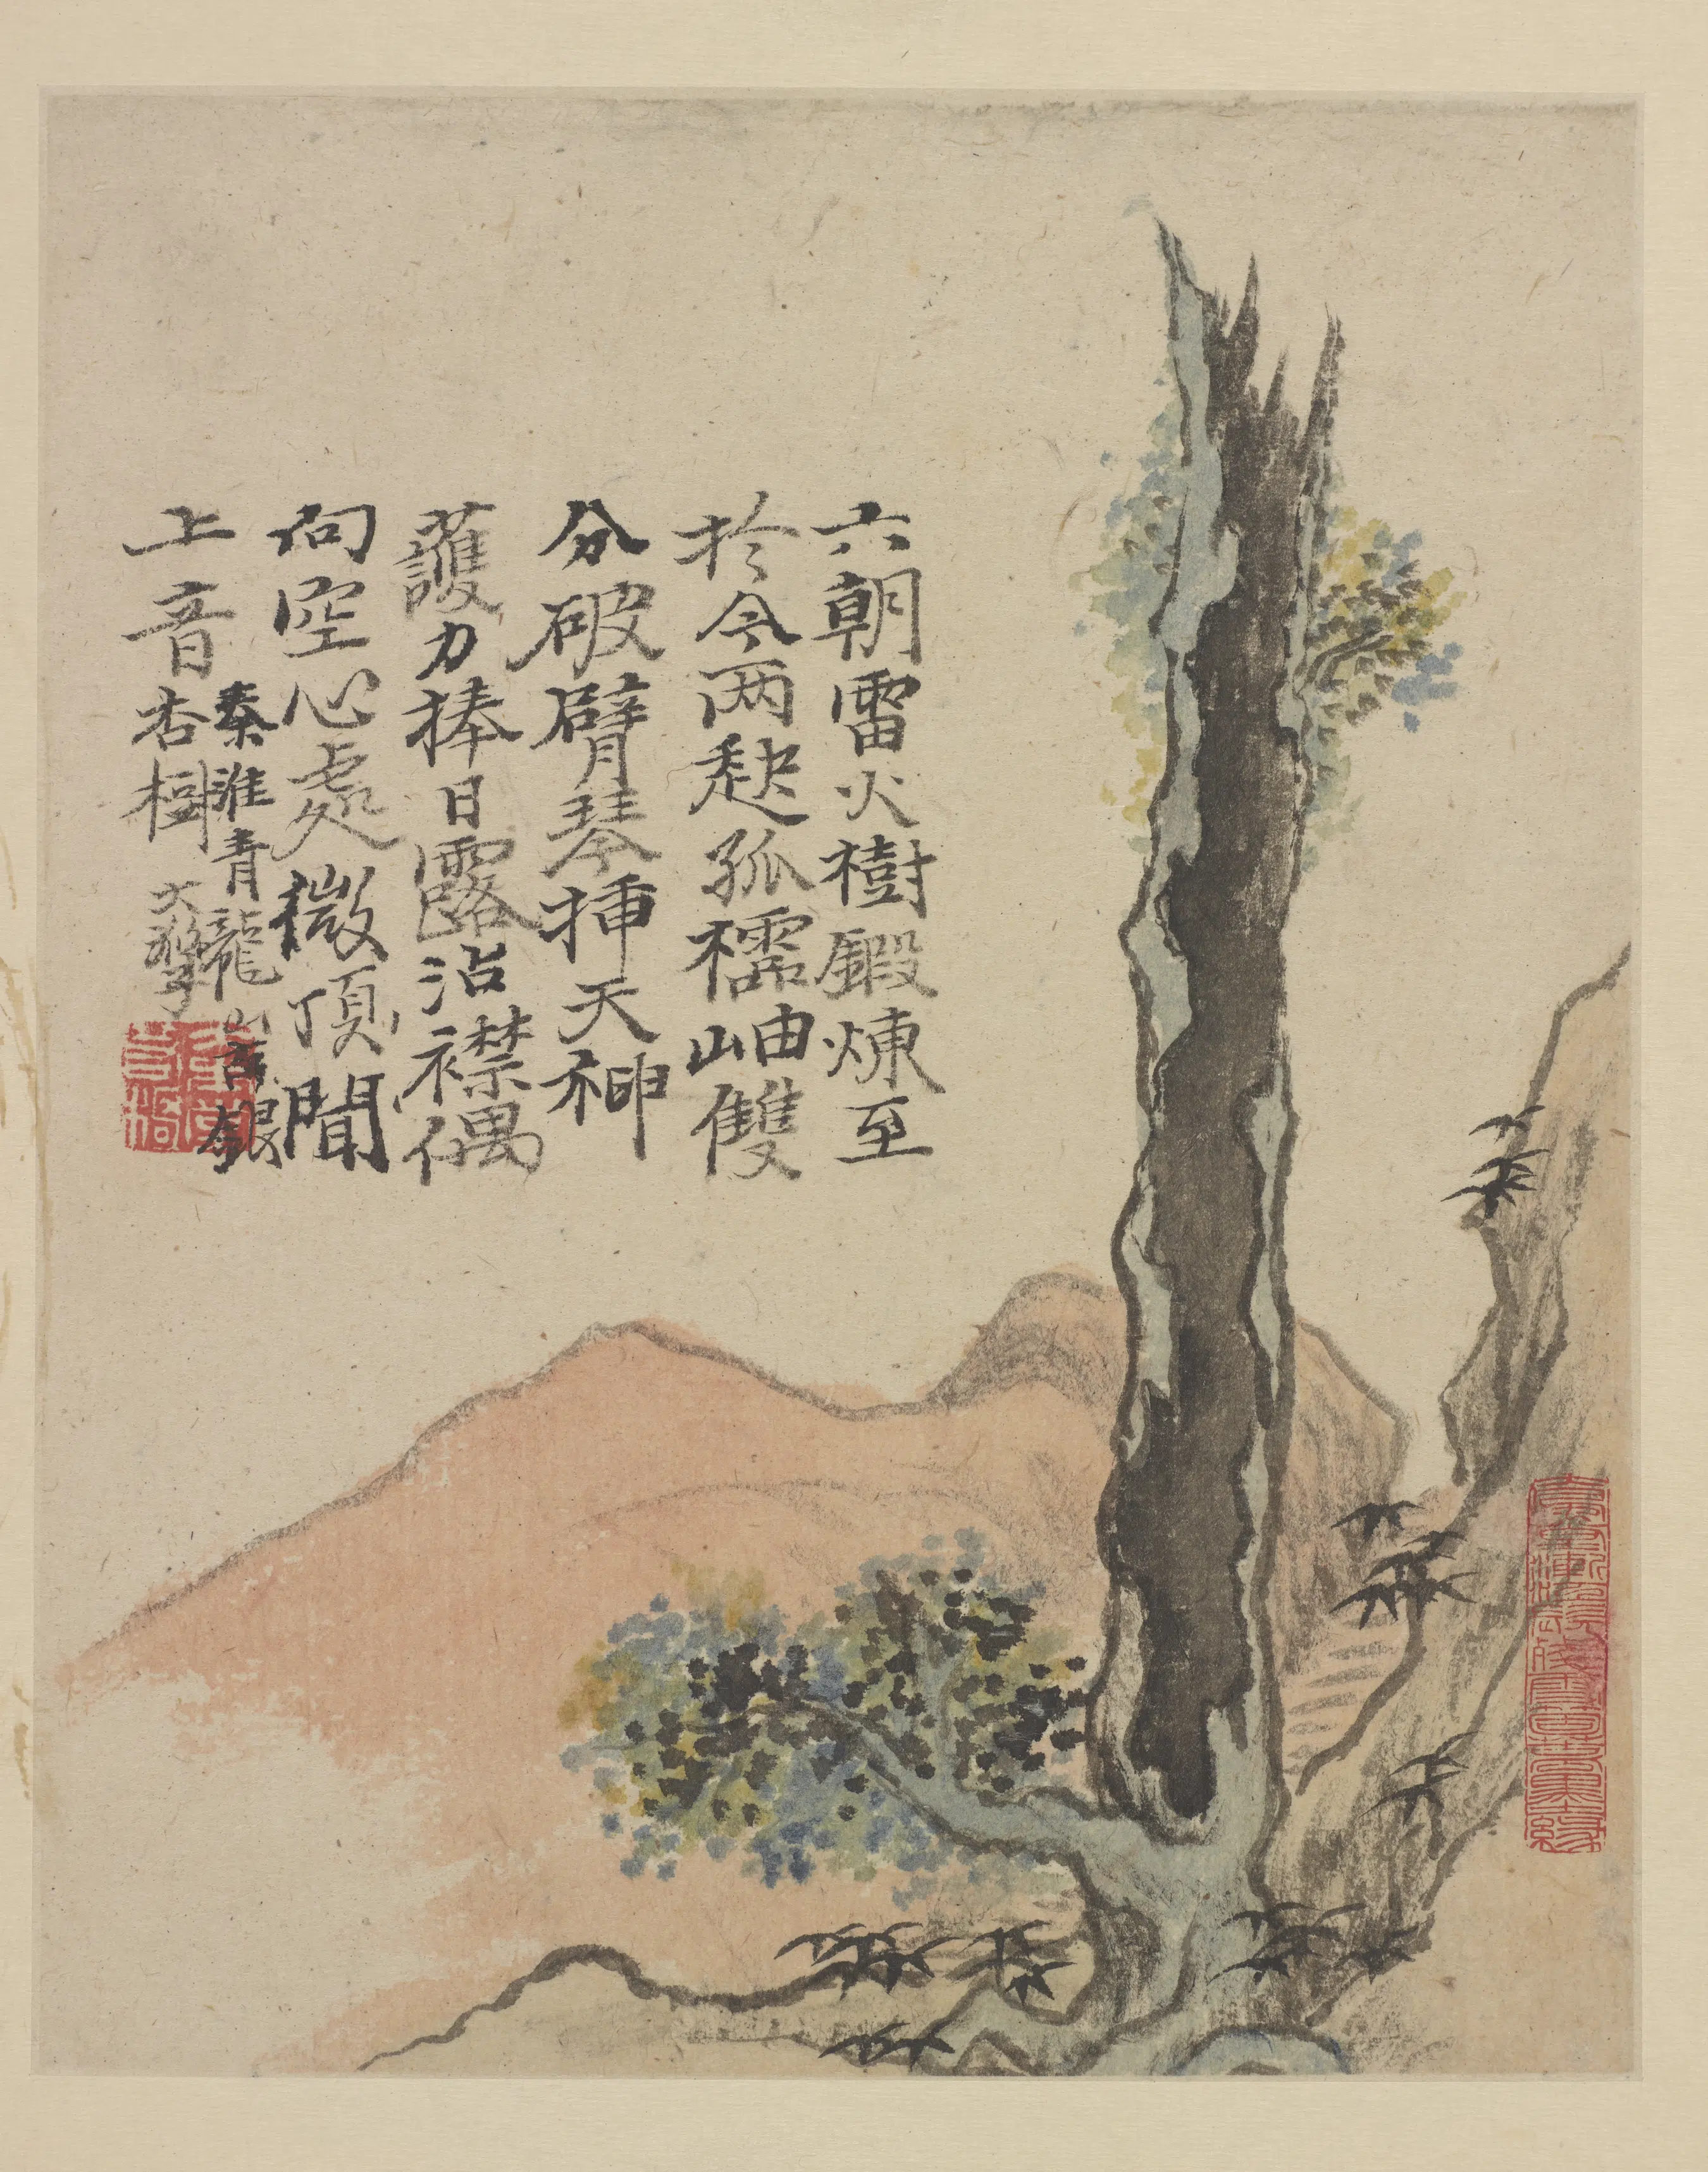 六朝雷火樹鍛煉至
於今兩孤襦岫雙
分破臂琴揷天神
護力捧日露沾襟偶
向空心處微頂聞
上音
秦淮青龍山古銀
杏樹 大滌子